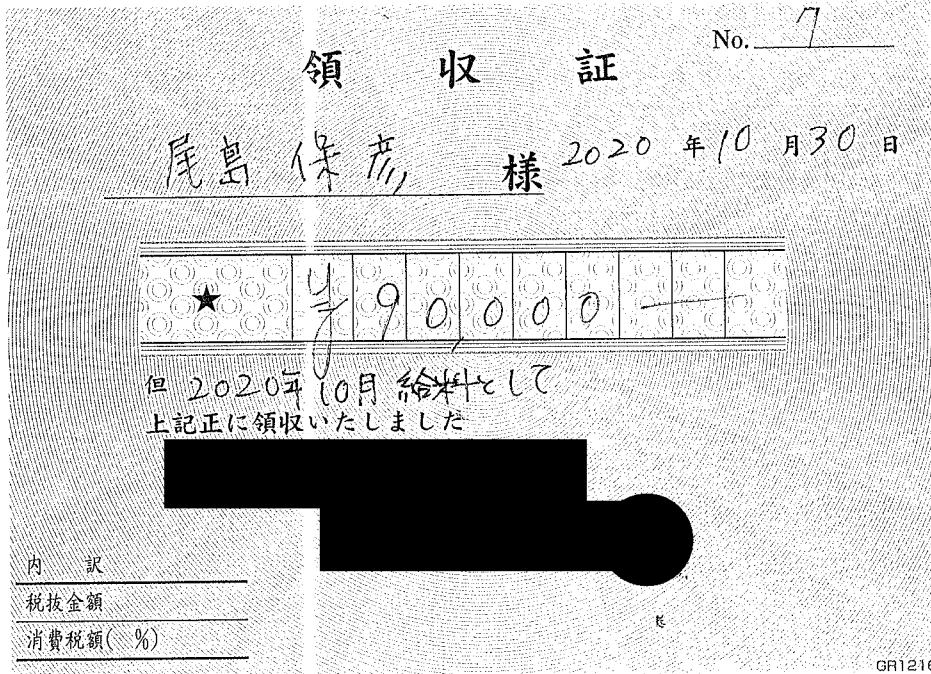 No. 7
領収証
尾島 保彦 様 2020年10月30日
★ ¥90,000-
但 2020年10月 給料として
上記正に領収いたしました
内訳
税抜金額
消費税額( %)
GR1216